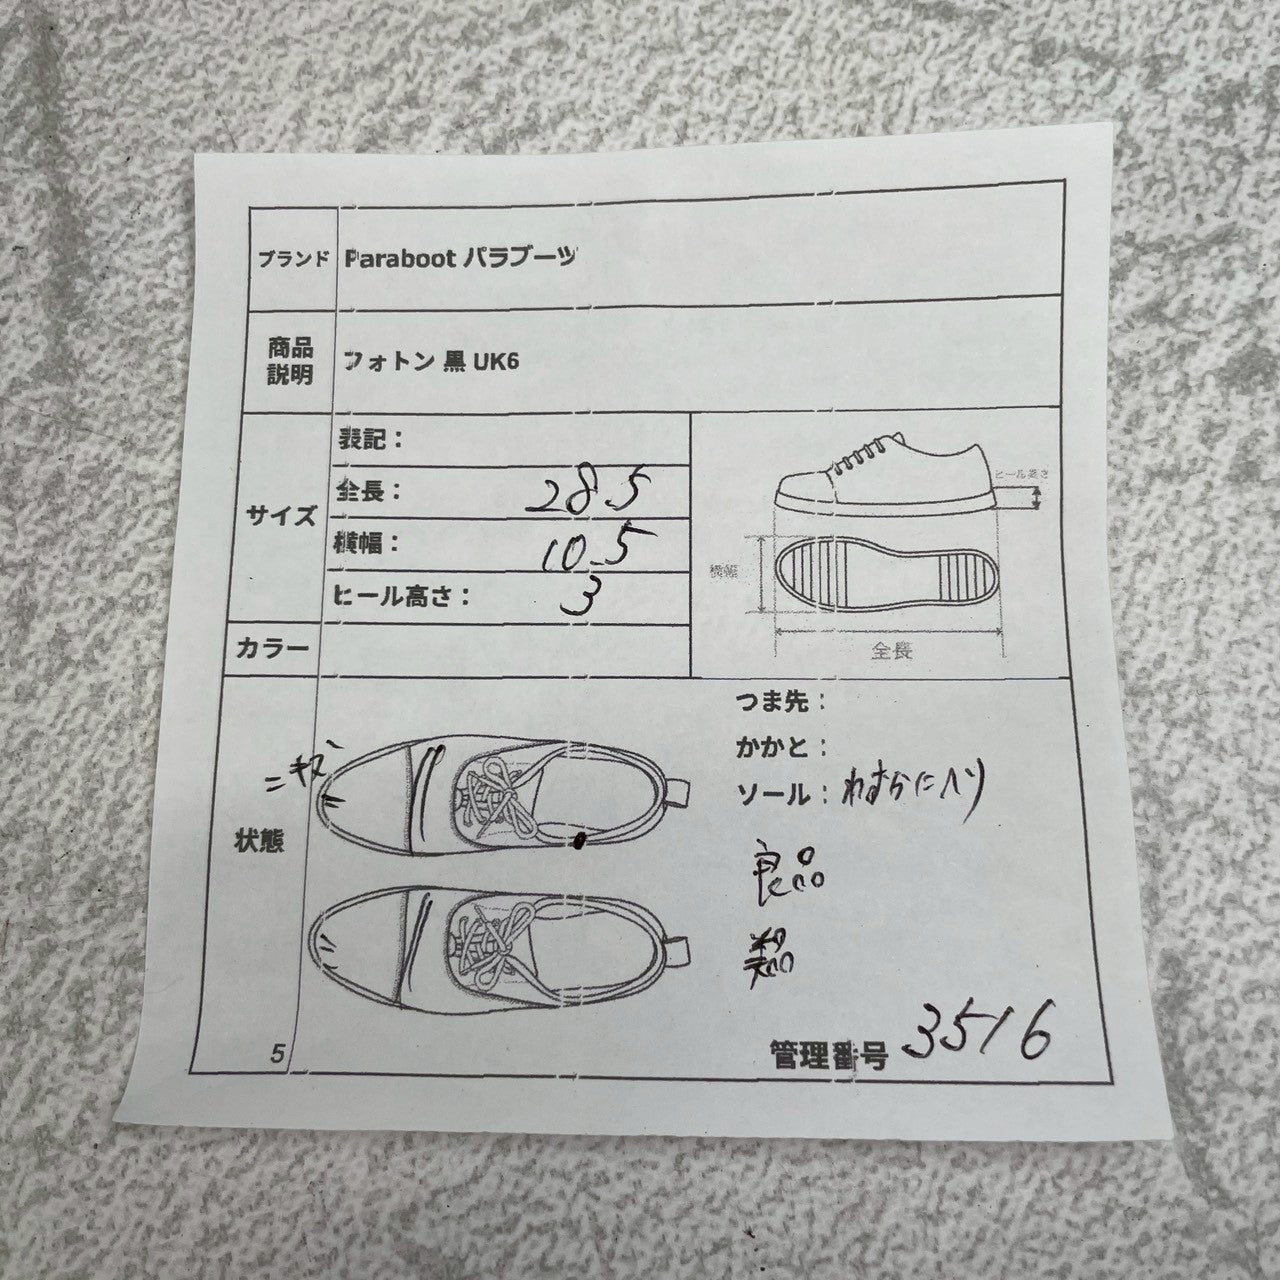 ブランド Paraboot パラブーツ
商品説明 フォトン 黒 UK6
サイズ
表記：
全長： 28.5
横幅： 10.5
ヒール高さ： 3
ヒール高さ
横幅
全長
カラー
状態
つま先：
かかと：
ソール： わずかにヘリ
良品
5
管理番号 3516